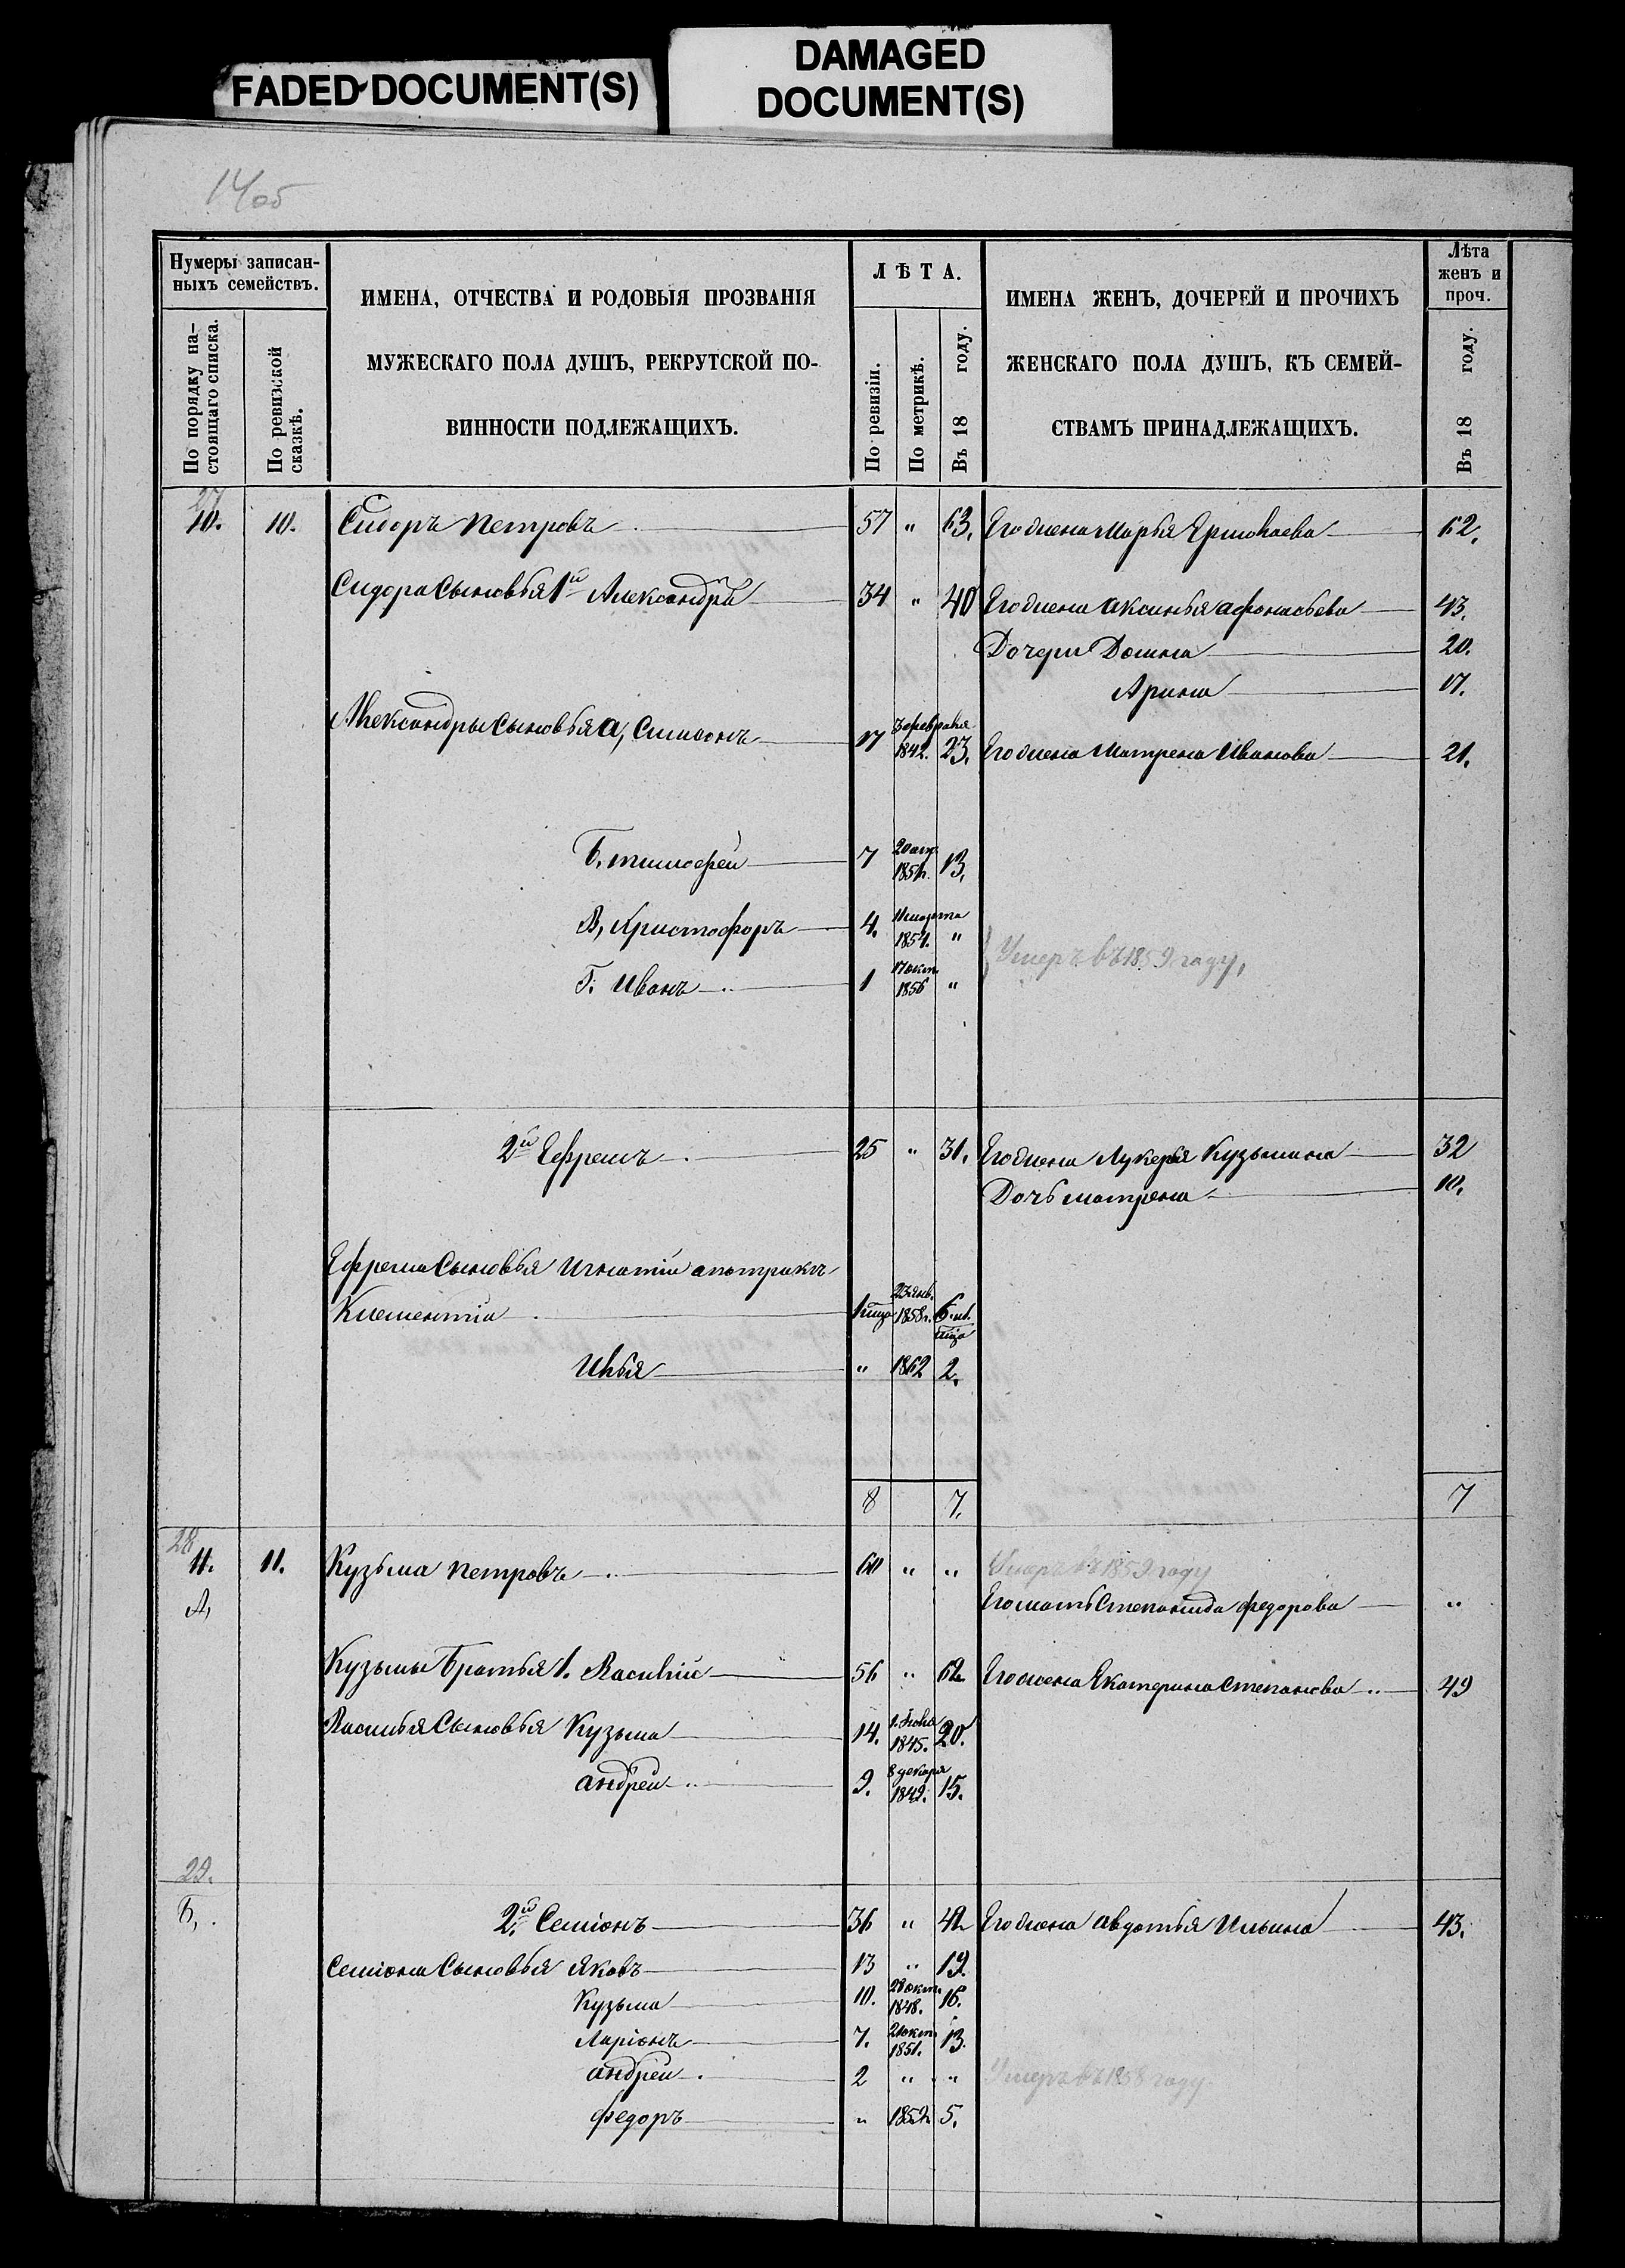 FADED DOCUMENT(S)
DAMAGED
DOCUMENT(S)
14об
Нумеры записан-
ныхъ семействъ.
По порядку на-
стоящаго списка.
По ревизской
сказкѣ.
ИМЕНА, ОТЧЕСТВА И РОДОВЫЯ ПРОЗВАНІЯ
МУЖЕСКАГО ПОЛА ДУШЪ, РЕКРУТСКОЙ ПО-
ВИННОСТИ ПОДЛЕЖАЩИХЪ.
ЛѢТА.
По ревизіи.
По метрикѣ.
Въ 18 году.
ИМЕНА ЖЕНЪ, ДОЧЕРЕЙ И ПРОЧИХЪ
ЖЕНСКАГО ПОЛА ДУШЪ, КЪ СЕМЕЙ-
СТВАМЪ ПРИНАДЛЕЖАЩИХЪ.
Лѣта
женъ и
проч.
Въ 18 году.
27
10. 10. Сидоръ Петровъ 57 " 63. Его жена Марья Ермолаева 62.
Сидора Сыновья 1й Александръ 34 " 40 Его жена Аксинья Афонасьева 43.
Дочери Домна 20.
Арина 17.
Александры Сыновья а, Симеонъ 17 3 февраля 1842. 23. Его жена Матрена Иванова 21.
Б. тимофей 7 1851. 13.
В, Христофоръ 4. 11 марта 1854. "
Умеръ въ 1859 году,
Г. Иванъ 1 17 окт. 1856 "
2й Ефремъ 25 " 31. Его жена Лукерья Кузьмина 32
Дочь матрена 10.
Ефрема Сыновья Игнатій
Клементій 1 23 янв. 1858 6
Илья " 1862 2.
8 7. 7
28
11. 11. Кузьма Петровъ 60 " " Умеръ въ 1859 году
А, Его мать Степанида федорова "
Кузьмы Братья 1. Василій 56 " 62 Его жена Екатерина Степанова 49
Василья Сыновья Кузьма 14. 1845. 20.
андрей 9. 8 декабря 1849. 15.
29.
Б, 2й Семіонъ 36 " 42 Его жена авдотья Ильина 43.
Семіона Сыновья Яковъ 13 " 19
Кузьма 10. 28 окт. 1848. 16.
Ларіонъ 7. 21 окт. 1851. 13.
андрей 2 " " Умеръ въ 1858 году
федоръ " 1859 5.